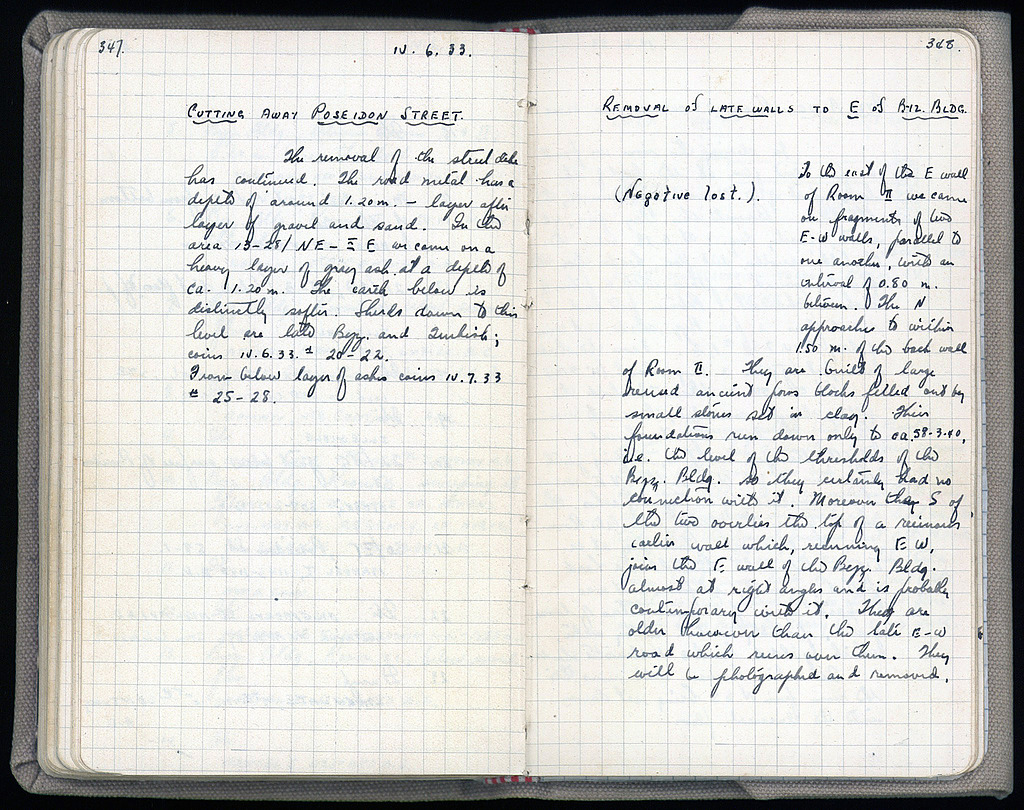 347.
IV. 6. 33.
CUTTING AWAY POSEIDON STREET.
The removal of the street
has continued. The road metal has a
depth of around 1.20 m. – layer after
layer of gravel and sand. In the
area 13-28/ NE – Ξ E we come on a
heavy layer of gray ash at a depth of
ca. 1.20 m. The earth below is
distinctly softer. Sherds down to this
level are late Byz. and Turkish;
coins IV.6.33. # 20-22.
From below layer of ashes coins IV.7.33
# 25-28.
348.
REMOVAL of LATE WALLS TO E of B-12. BLDG.
(Negative lost.).
To the east of the E wall
of Room II we came
on fragments of two
E-W walls, parallel to
one another, with an
interval of 0.80 m.
between. The N
approaches to within
1.50 m. of the back wall
of Room II. They are built of large
reused ancient poros blocks filled out by
small stones set in clay. Their
foundations run down only to ca. 58-3.40,
i.e. the level of the thresholds of the
Byz. Bldg. so they certainly had no
connection with it. Moreover the S of
the two overlies the top of a ruinous
earlier wall which, running E-W,
joins the E wall of the Byz. Bldg.
almost at right angles and is probably
contemporary with it. They are
older however than the late E-W
road which runs over them. They
will be photographed and removed.